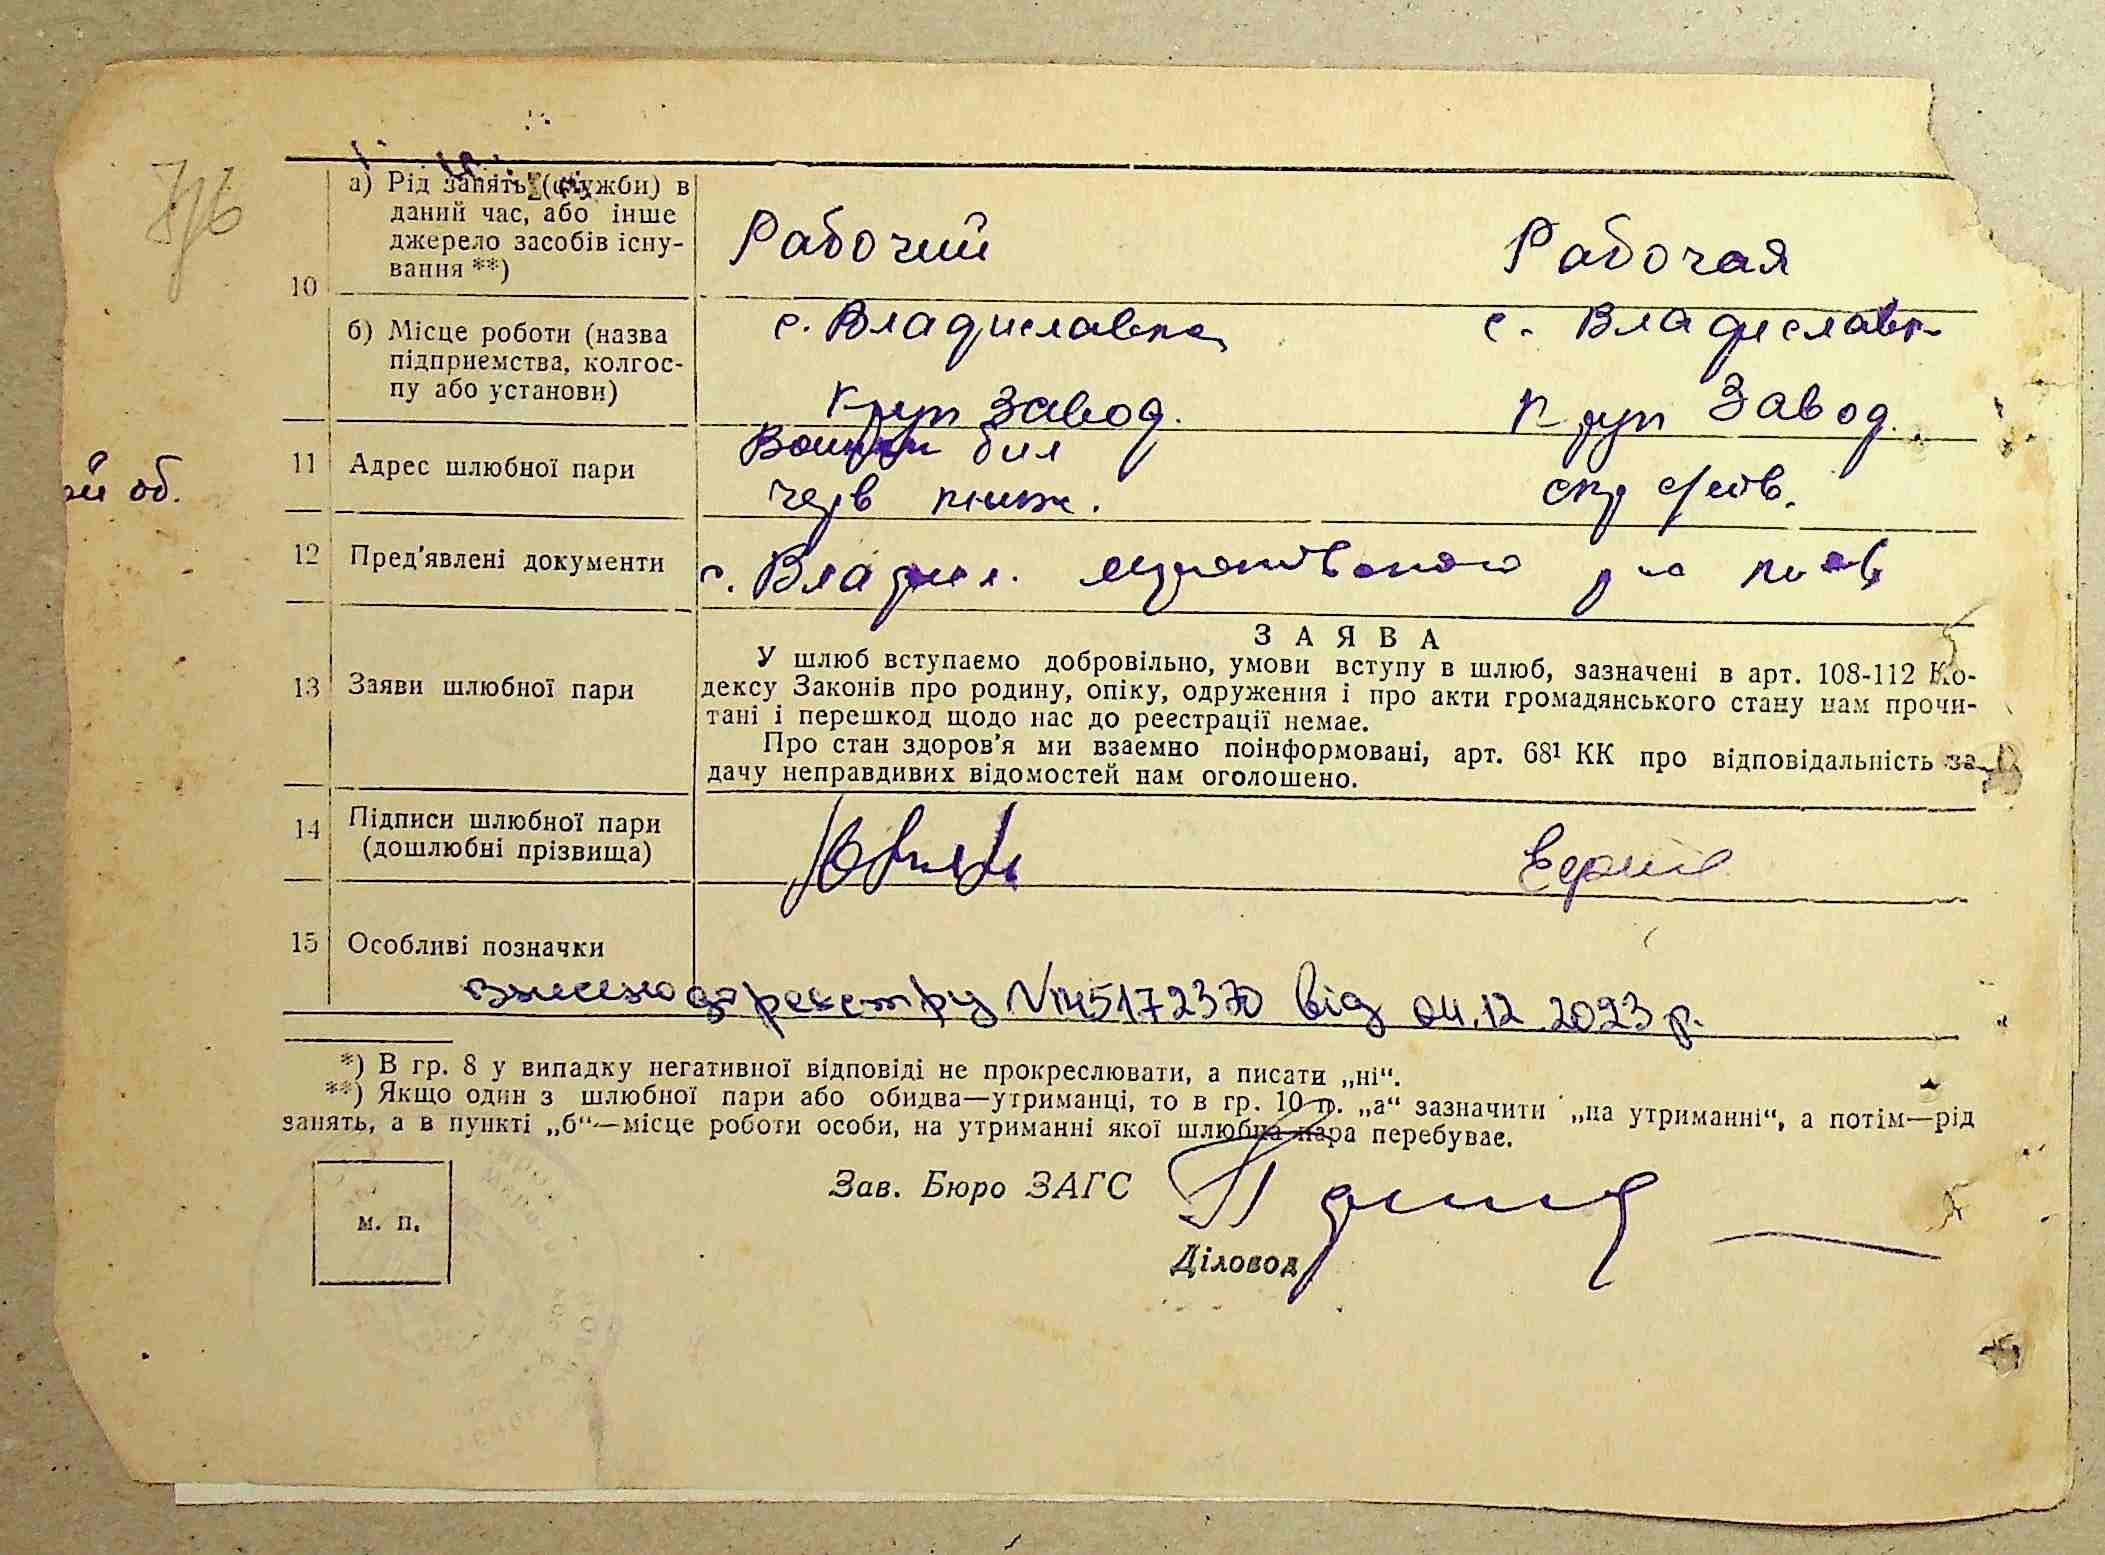 а) Рід занять (служби) в
даний час, або інше
джерело засобів існу-
вання **)
Рабочий
Рабочая
10
б) Місце роботи (назва
підприємства, колгос-
пу або установи)
с. Владиславка
с. Владиславк
Круп завод.
Круп завод.
11
Адрес шлюбної пари
бил
ий об.
12
Пред'явлені документи
с. Владисл.
13
Заяви шлюбної пари
ЗАЯВА
У шлюб вступаємо добровільно, умови вступу в шлюб, зазначені в арт. 108-112 Ко-
дексу Законів про родину, опіку, одруження і про акти громадянського стану нам прочи-
тані і перешкод щодо нас до реєстрації немає.
Про стан здоров'я ми взаємно поінформовані, арт. 68¹ КК про відповідальність за
дачу неправдивих відомостей нам оголошено.
14
Підписи шлюбної пари
(дошлюбні прізвища)
15
Особливі позначки
внесено до реєстру №145172370 від 04.12.2023р.
*) В гр. 8 у випадку негативної відповіді не прокреслювати, а писати „ні“.
**) Якщо один з шлюбної пари або обидва—утриманці, то в гр. 10 п. „а“ зазначити „на утриманні“, а потім—рід
занять, а в пункті „б“—місце роботи особи, на утриманні якої шлюбна пара перебуває.
Зав. Бюро ЗАГС
м. п.
Діловод